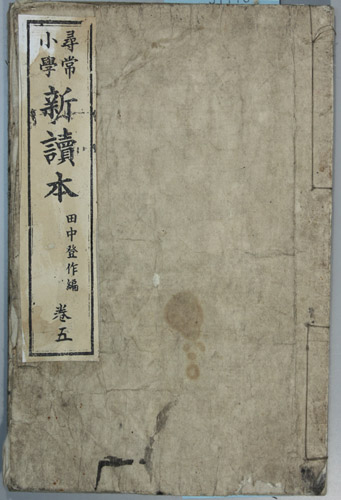 尋常
小學
新讀本
田中登作編
巻五